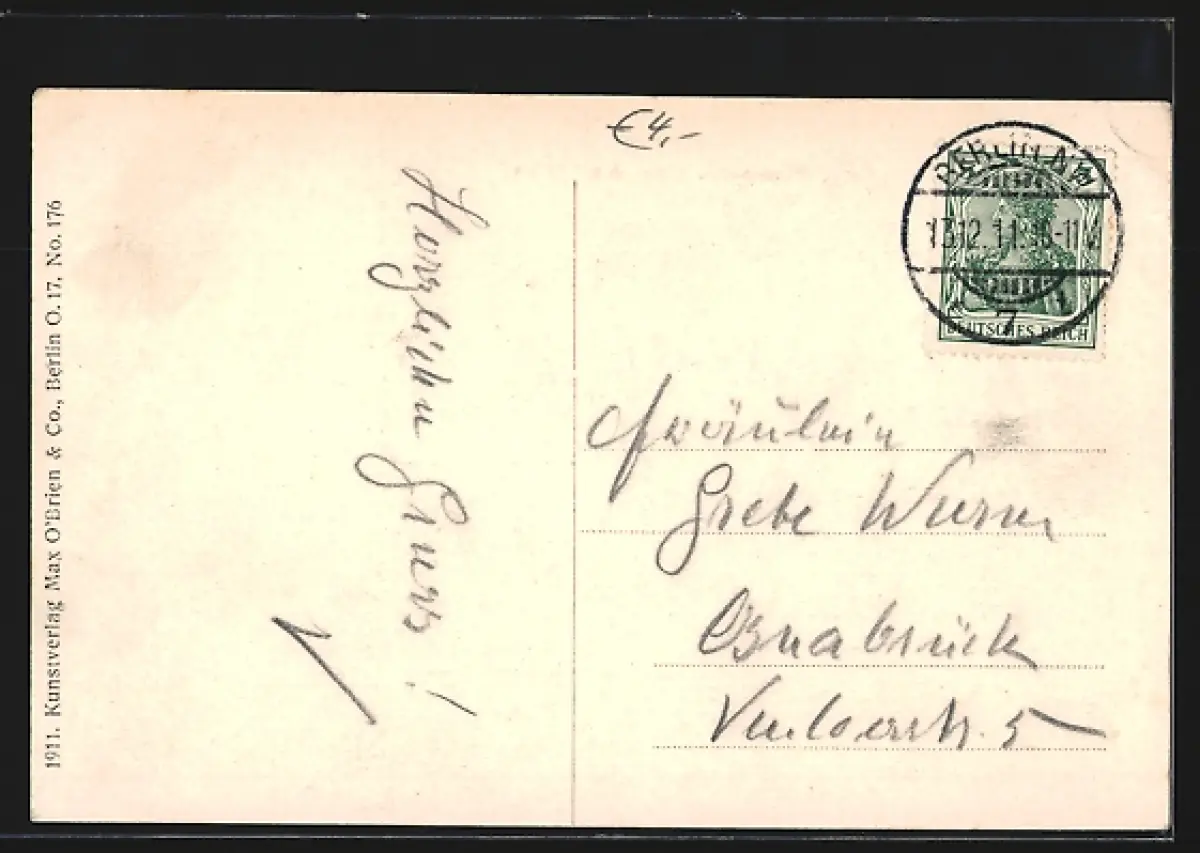 €4,-
BERLIN NW
13.12.11.10-11
7
DEUTSCHES REICH
Herzlichen Gruss!
Fräulein
Grete Wurm
Osnabrück
5
1911. Kunstverlag Max O'Brien & Co., Berlin O. 17. No. 176